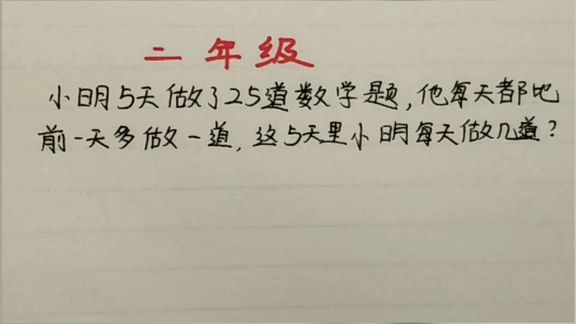 二年级
小明5天做了25道数学题,他每天都比
前一天多做一道,这5天里小明每天做几道?